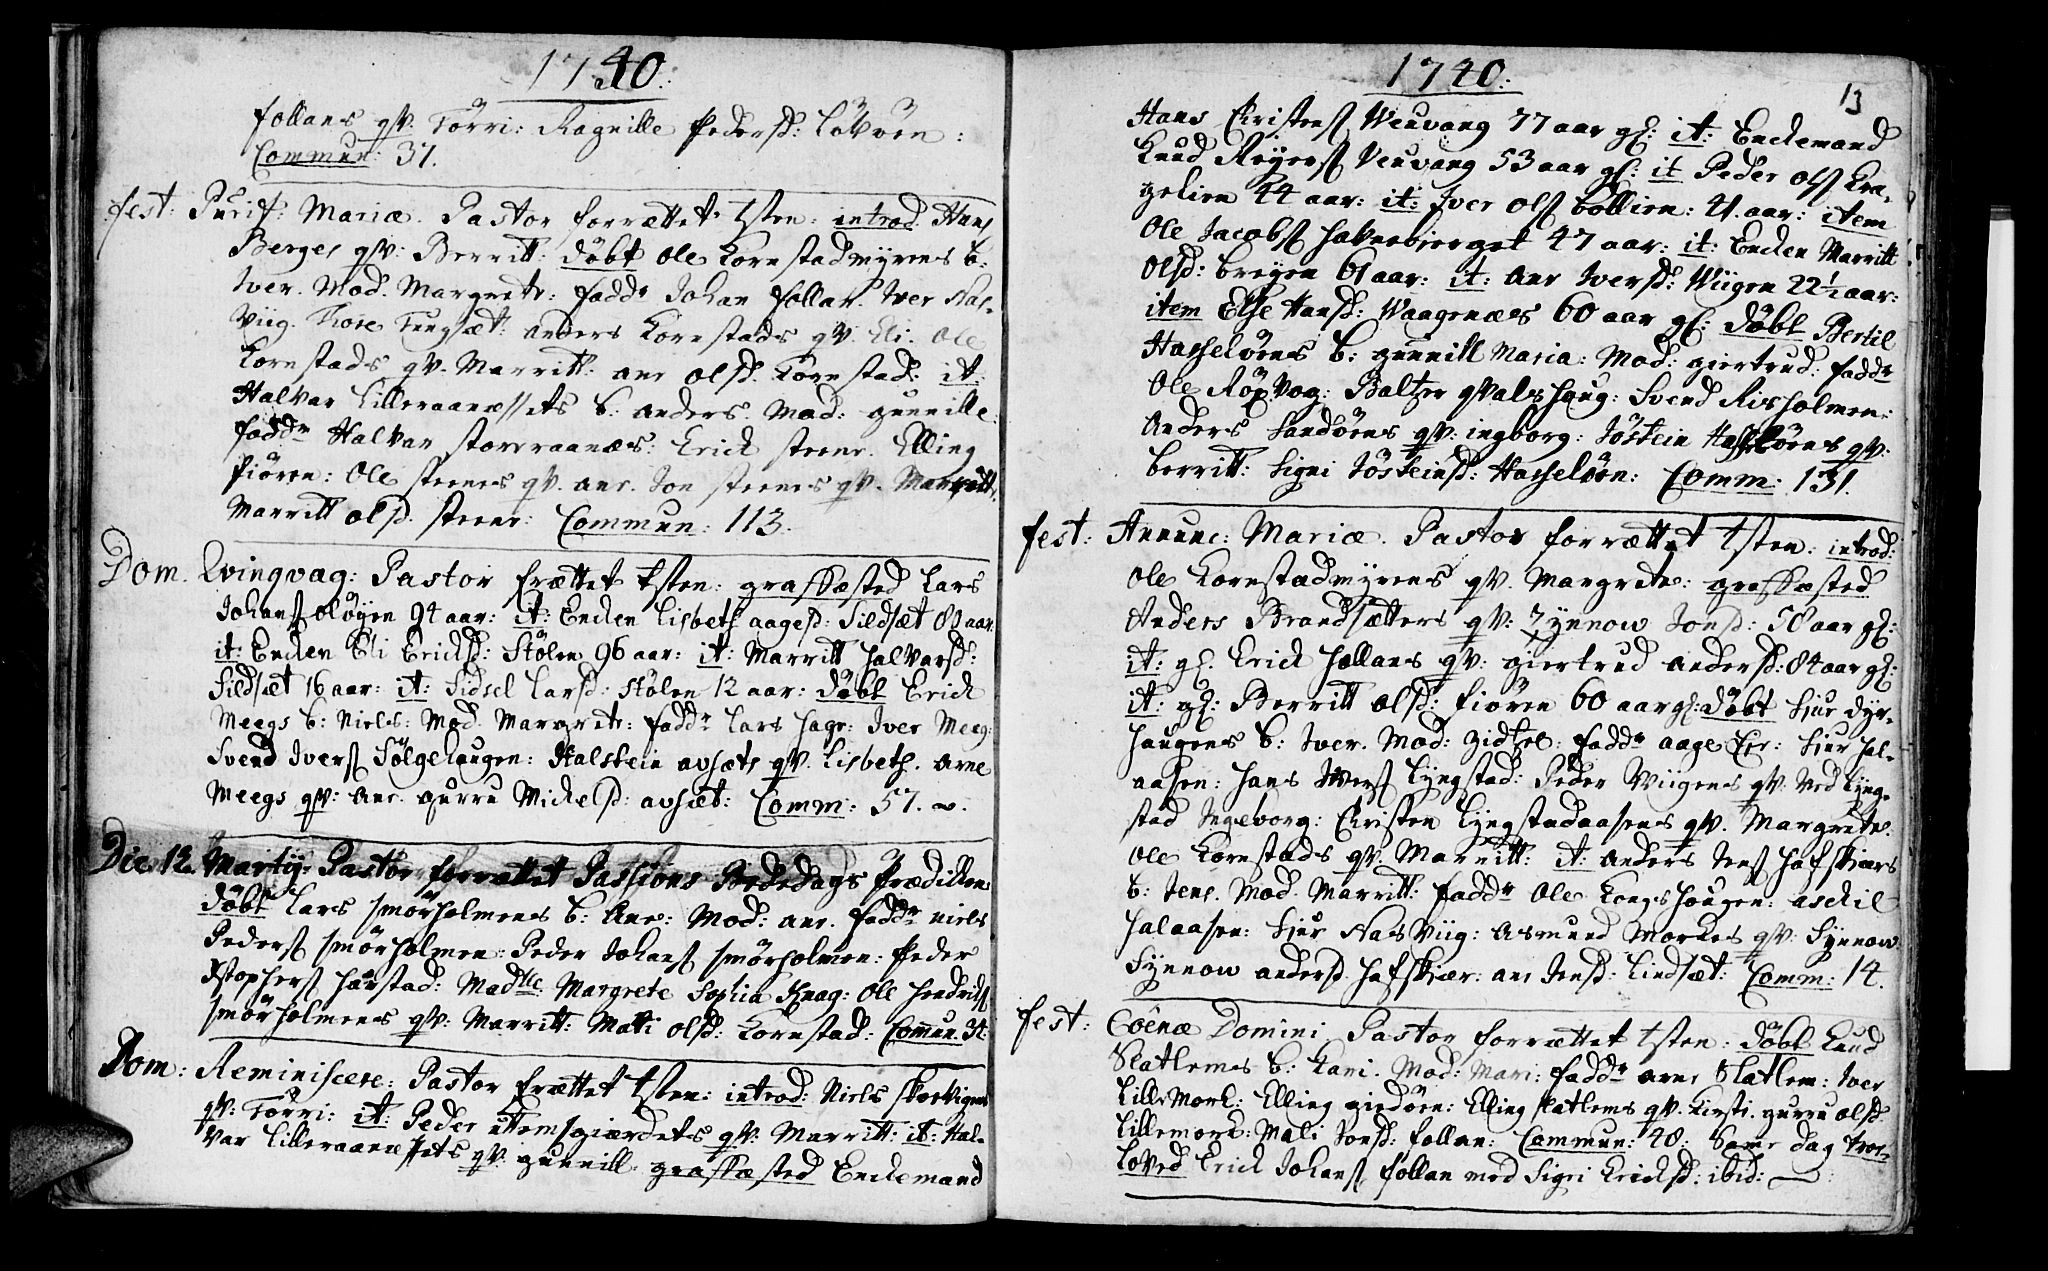 1740.
follans qv. Törri: Ragnille Pedersd: Lövöen:
Commun: 37.
fest: Purif: Mariæ. Pastor forrættet tsten: introd. Hans
Berges qv: Berritt: döbt Ole Kornstadmyrens b:
Iver. Mod. Margrete: fadde Johan follan. Iver Nas-
viig. Tore Tungsæt: anders Kornstads qv. Eli. Ole
Kornstads qv. Marritt: ane olsd. Kornstad: it:
Halvar Lilleraanæssets b: anders. Mod: gunnille:
fadde Halvar storraanæs: Erick steene. Elling
fiören: Ole steenes qv. ane. Jon steenes qv. Marritt.
Marritt olsd. steene: Commun: 113.
Dom. Qvinqvag: Pastor frættet tsten: grafkæsted Lars
Johans. ologen 94 aar: it: Encken Lisbeth aagesd: Sildsæt 80 aar
it: Encken Eli Ericksd: Stölen 96 aar: it: Marritt Halvarsd:
Sildsæt 16 aar: it: Sidsel Larsd: Stölen 12 aar: döbt Erick
Meegs b: Niels: Mod. Margrete: fadde Lars Hage: Iver Meeg:
Svend Ivers. Sölgehaugen: Halstein avsæts qv. Lisbeth. Arne
Meegs qv: Ane. gurru Mickelsd: avsæt: Comm: 57.
Die 12. Martij: Pastor forrættet Passions Bededags Prædicken
döbt Lars Smörholmens b: Ane: Mod: ane. fadde Niels
Peders. Smörholmen: Peder Johans. Smörholmen: Peder
Xstophers. Harstad: Madlle: Margrete Sophia Knag: Ole Hendricks.
Smörholmens qv: Marritt: Mali olsd: Kornstad: Comun. 31.
Dom: Reminiscere: Pastor frættet tsten: introd: Niels
qv: Törri: it: Peder ottemsgiærdets qv: Marritt: it: Hal-
var Lilleraanæssets qv: gunnill. grafkæsted Enckemand
1740.
13
Hans Christens. Veuvang 77 aar gl: it: Enckemand
Knud Reyers. Veuvang 53 aar gl: it Peder ols. Kra-
gelien 44 aar: it: Iver ols. bollien: 41. aar: item
Ole Jacobs. Havnebierget 47 aar: it: Encken Marritt
Olsd: breyen 61 aar: it: Ane Iversd: Wiigen 22½ aar:
item Else Hansd: Waagenæs 60 aar gl: döbt Bertil
Hasselöens b: gunnill Maria: Mod: giertrud: fadde
Ole Röpvog: Baltzer qvalshaug: Svend Risholmen:
Anders Sandöens qv: ingborg: Jöstein Hasselöens qv:
berritt: Signi Jösteinsd: Hasselöen: Comm: 131.
fest: Annunc: Mariæ. Pastor forrættet tsten: introd:
Ole Kornstadmyrens qv. Margrete: grafkæsted
Anders Brandsætters qv: Synnow Jonsd: 58 aar gl:
it: gl. Erick Hollans qv: giertrud andersd: 84 aar gl:
it: gl: Berritt olsd: fiören 60 aar gl: döbt Sjur Dyr-
haugens b: Iver. Mod: Zidsel: fadde aage Eer: Sjur Hal-
aasen: Hans Ivers. Lyngstad: Peder Viigens qv: Ved Lyng-
stad Ingeborg: Christen Lyngstadaasens qv. Margrete.
Ole Kornstads qv: Marritt: it: anders Jens. Hafskiærs
b: Jens. Mod. Marritt: fadde Ole Kongshougen: aschil
Halaasen: Sjur Nasviig: Asmund Morkes qv: Synnow
Synnow andersd. Hafskiær: ane Jensd: Lindsæt: Comm: 14.
fest: Coenæ Domini Pastor forrættet tsten: döbt Knud
Slatlems b: Kari. Mod: Mari: fadde arne Slatlem: Iver
Lille Mork: Elling giedöen: Elling Slatlems qv. Kirsti. gurru olsd
Lillemork: Mali Jonsd: follan: Commun: 48: Same dag troe-
loved Erick Johans. follan med Sigri Ericksd: ibid: